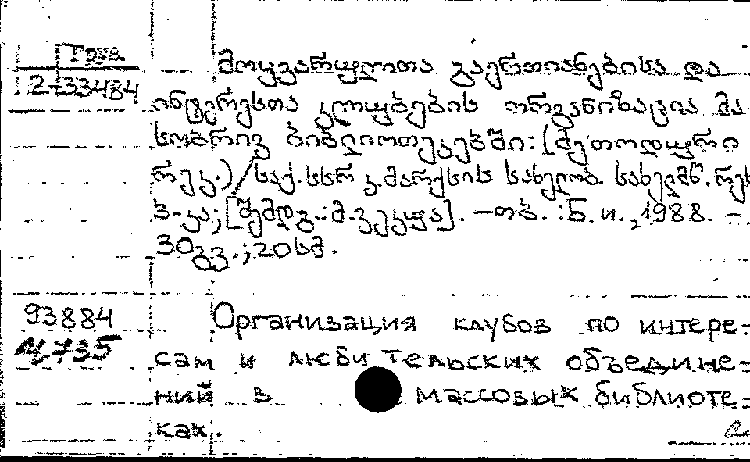 Груз
2733484
მოყვარულთა გაერთიანებისა და
ინტერესთა კლუბების ორგანიზაცია მა
სობრივ ბიბლიოთეკებში: [მეთოდური
რეკ.) / საქ. სსრ კ. მარქსის სახელობ. სახელმწ. რეს
ბ-კა; [შემდგ.: მ. კეკუა]. – თბ. : ნ. ი., 1988. –
30 გვ.; 20 სმ.
93884
М.735
Организация клубов по интере-
сам и любительских объедине-
ний в массовых библиоте-
ках.